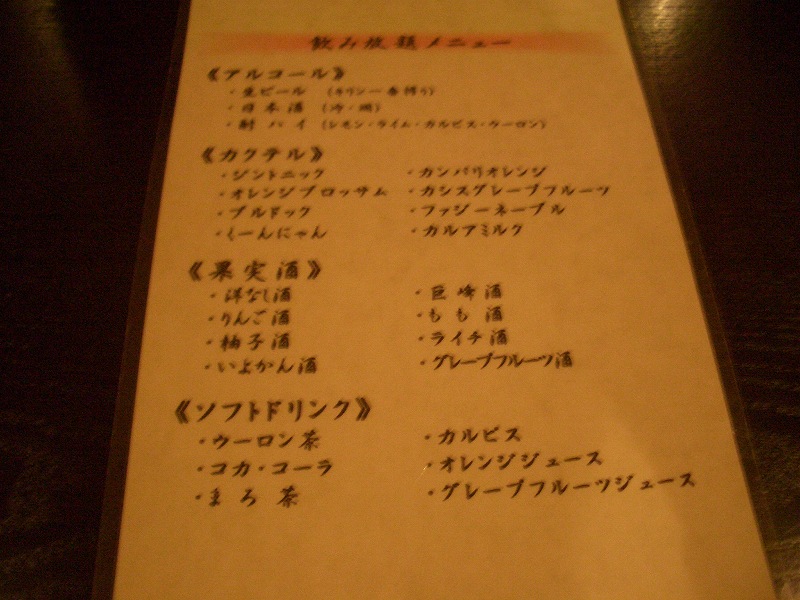 飲み放題メニュー
《アルコール》
・生ビール （キリン一番搾り）
・日本酒 （冷・燗）
・酎ハイ （レモン・ライム・カルピス・ウーロン）
《カクテル》
・ジントニック ・カンパリオレンジ
・オレンジブロッサム ・カシスグレープフルーツ
・ブルドック ・ファジーネーブル
・くーんにゃん ・カルアミルク
《果実酒》
・洋なし酒 ・巨峰酒
・りんご酒 ・もも酒
・柚子酒 ・ライチ酒
・いよかん酒 ・グレープフルーツ酒
《ソフトドリンク》
・ウーロン茶 ・カルピス
・コカ・コーラ ・オレンジジュース
・まろ茶 ・グレープフルーツジュース